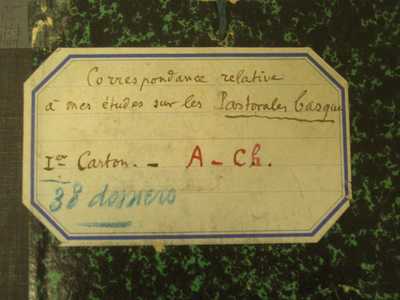 Correspondance relative
à mes études sur les Pastorales basques
Ier Carton. - A - Ch.
38 dossiers